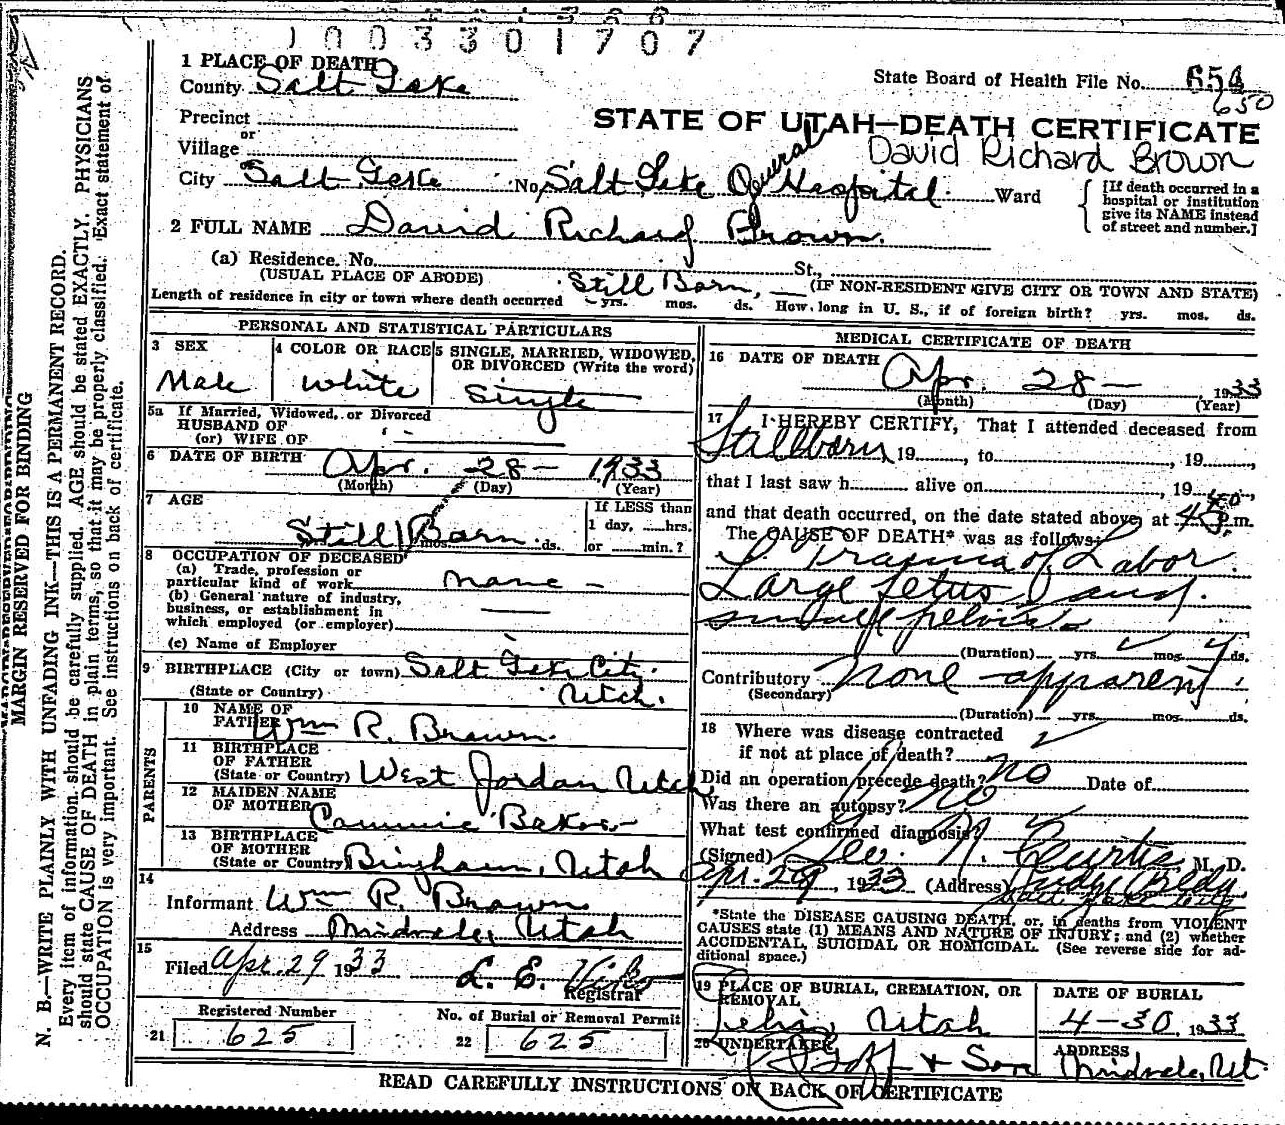 1003301707
1 PLACE OF DEATH
County Salt Lake
State Board of Health File No. 654
650
Precinct
or
Village
STATE OF UTAH—DEATH CERTIFICATE
David Richard Brown
City Salt Lake No. Salt Lake General Hospital Ward
[If death occurred in a hospital or institution give its NAME instead of street and number.]
2 FULL NAME David Richard Brown.
(a) Residence. No. St.,
(USUAL PLACE OF ABODE) Still Born, (IF NON-RESIDENT GIVE CITY OR TOWN AND STATE)
Length of residence in city or town where death occurred yrs. mos. ds. How long in U. S., if of foreign birth? yrs. mos. ds.
PERSONAL AND STATISTICAL PARTICULARS
3 SEX
Male
4 COLOR OR RACE
White
5 SINGLE, MARRIED, WIDOWED, OR DIVORCED (Write the word)
Single
5a If Married, Widowed, or Divorced
HUSBAND OF
(or) WIFE OF
6 DATE OF BIRTH Apr. 28 — 1933
(Month) (Day) (Year)
7 AGE
Still Born mos. ds.
If LESS than
1 day, hrs.
or min.?
8 OCCUPATION OF DECEASED
(a) Trade, profession or
particular kind of work None —
(b) General nature of industry,
business, or establishment in
which employed (or employer)
(c) Name of Employer
9 BIRTHPLACE (City or town) Salt Lake City.
(State or Country) Utah.
PARENTS
10 NAME OF
FATHER Wm R. Brown.
11 BIRTHPLACE
OF FATHER
(State or Country) West Jordan Utah
12 MAIDEN NAME
OF MOTHER Cammie Baker
13 BIRTHPLACE
OF MOTHER
(State or Country) Bingham, Utah
14
Informant Wm R. Brown
Address Midvale, Utah
15
Filed Apr. 29 1933 L. E.
Registrar
Registered Number
21 625
No. of Burial or Removal Permit
22 625
MEDICAL CERTIFICATE OF DEATH
16 DATE OF DEATH Apr. 28 — 1933
(Month) (Day) (Year)
17 I HEREBY CERTIFY, That I attended deceased from
Stillborn 19 , to , 19 ,
that I last saw h alive on , 19 ,
and that death occurred, on the date stated above, at p.m.
The CAUSE OF DEATH* was as follows:
Trauma of Labor.
Large fetus and
small pelvis
(Duration) yrs. mos. ds.
Contributory None apparent.
(Secondary)
(Duration) yrs. mos. ds.
18 Where was disease contracted
if not at place of death?
Did an operation precede death? No Date of
Was there an autopsy? No
What test confirmed diagnosis?
(Signed) Geo. N. Curtis M. D.
Apr. 28, 1933 (Address) Judge Bldg
Salt Lake City
*State the DISEASE CAUSING DEATH, or, in deaths from VIOLENT
CAUSES state (1) MEANS AND NATURE OF INJURY; and (2) whether
ACCIDENTAL, SUICIDAL OR HOMICIDAL. (See reverse side for ad-
ditional space.)
19 PLACE OF BURIAL, CREMATION, OR
REMOVAL
Lehi, Utah
DATE OF BURIAL
4-30, 1933
20 UNDERTAKER
Goff & Son
ADDRESS
Midvale, Ut.
READ CAREFULLY INSTRUCTIONS ON BACK OF CERTIFICATE
MARGIN RESERVED FOR BINDING
N. B.—WRITE PLAINLY WITH UNFADING INK—THIS IS A PERMANENT RECORD.
Every item of information should be carefully supplied. AGE should be stated EXACTLY. PHYSICIANS
should state CAUSE OF DEATH in plain terms, so that it may be properly classified. Exact statement of
OCCUPATION is very important. See instructions on back of certificate.